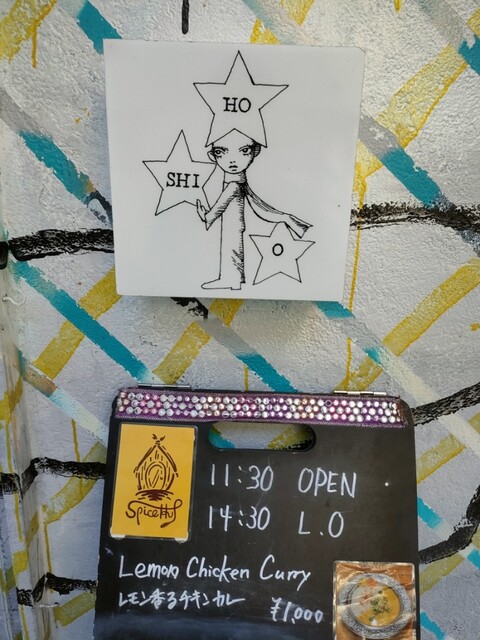 HO
SHI
O
11:30 OPEN
14:30 L.O
Spicehut
Lemon Chicken Curry
レモン香るチキンカレー
¥1,000